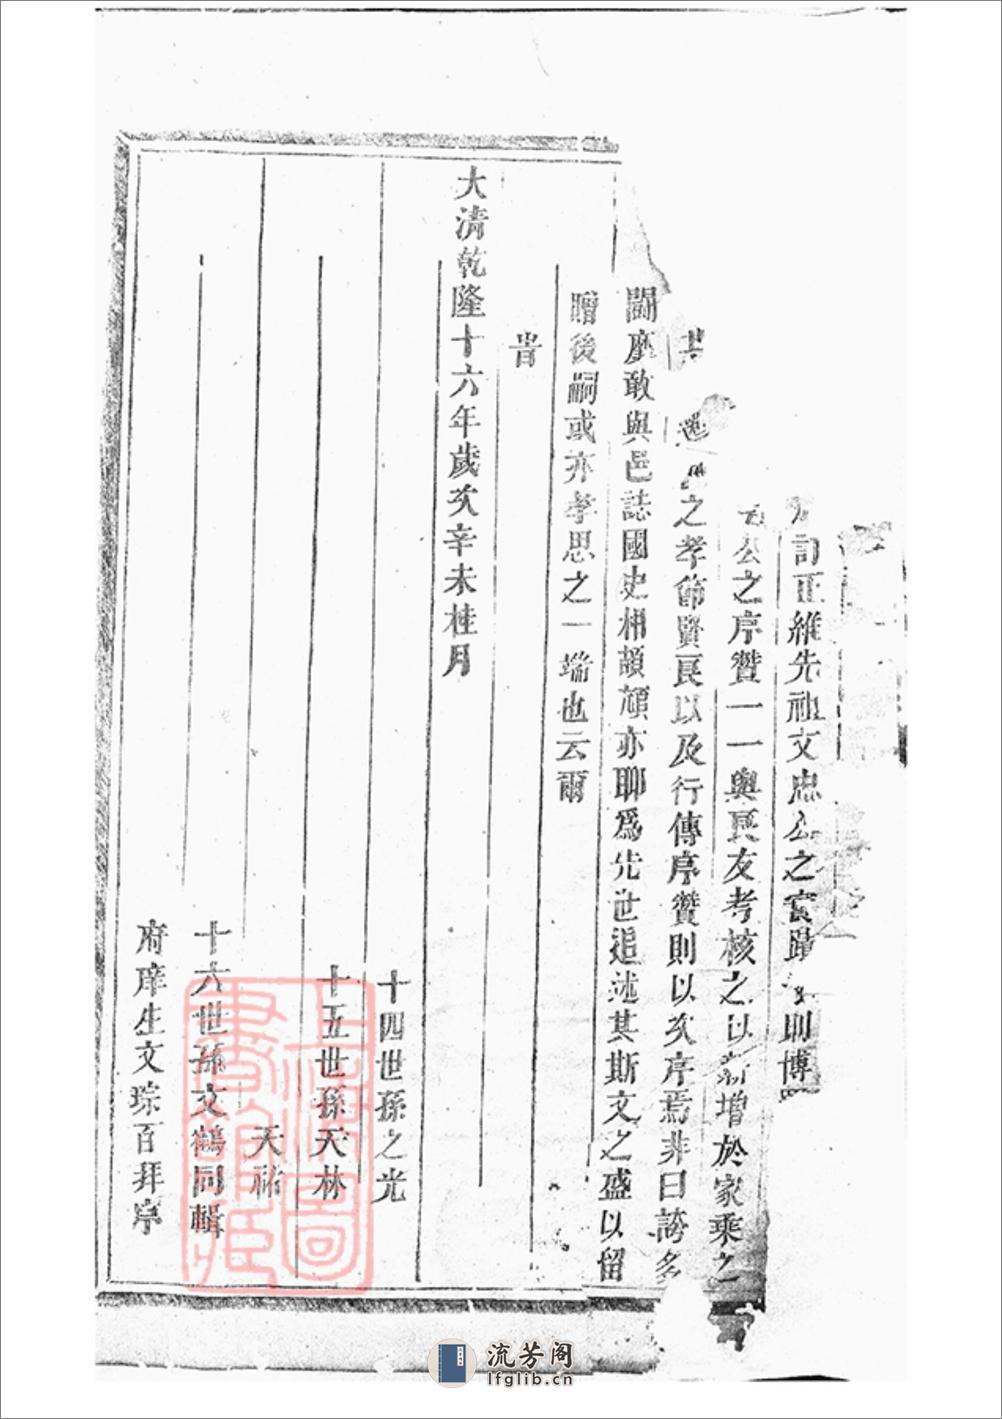 訂正維先祖文忠公之實蹟
則博
公之序贊一一與良友考核之以新增於家乘之
其
之孝節賢良以及行傳序贊則以次序焉非曰誇多
鬬靡敢與邑誌國史相頡頏亦聊爲先世追述其斯文之盛以留
贈後嗣或亦孝思之一端也云爾
旹
大清乾隆十六年歲次辛未桂月
十四世孫之光
十五世孫天林
天祐
十六世孫文鶴同輯
府庠生文琮百拜序
上海圖書館藏
流芳阁
lfglib.cn